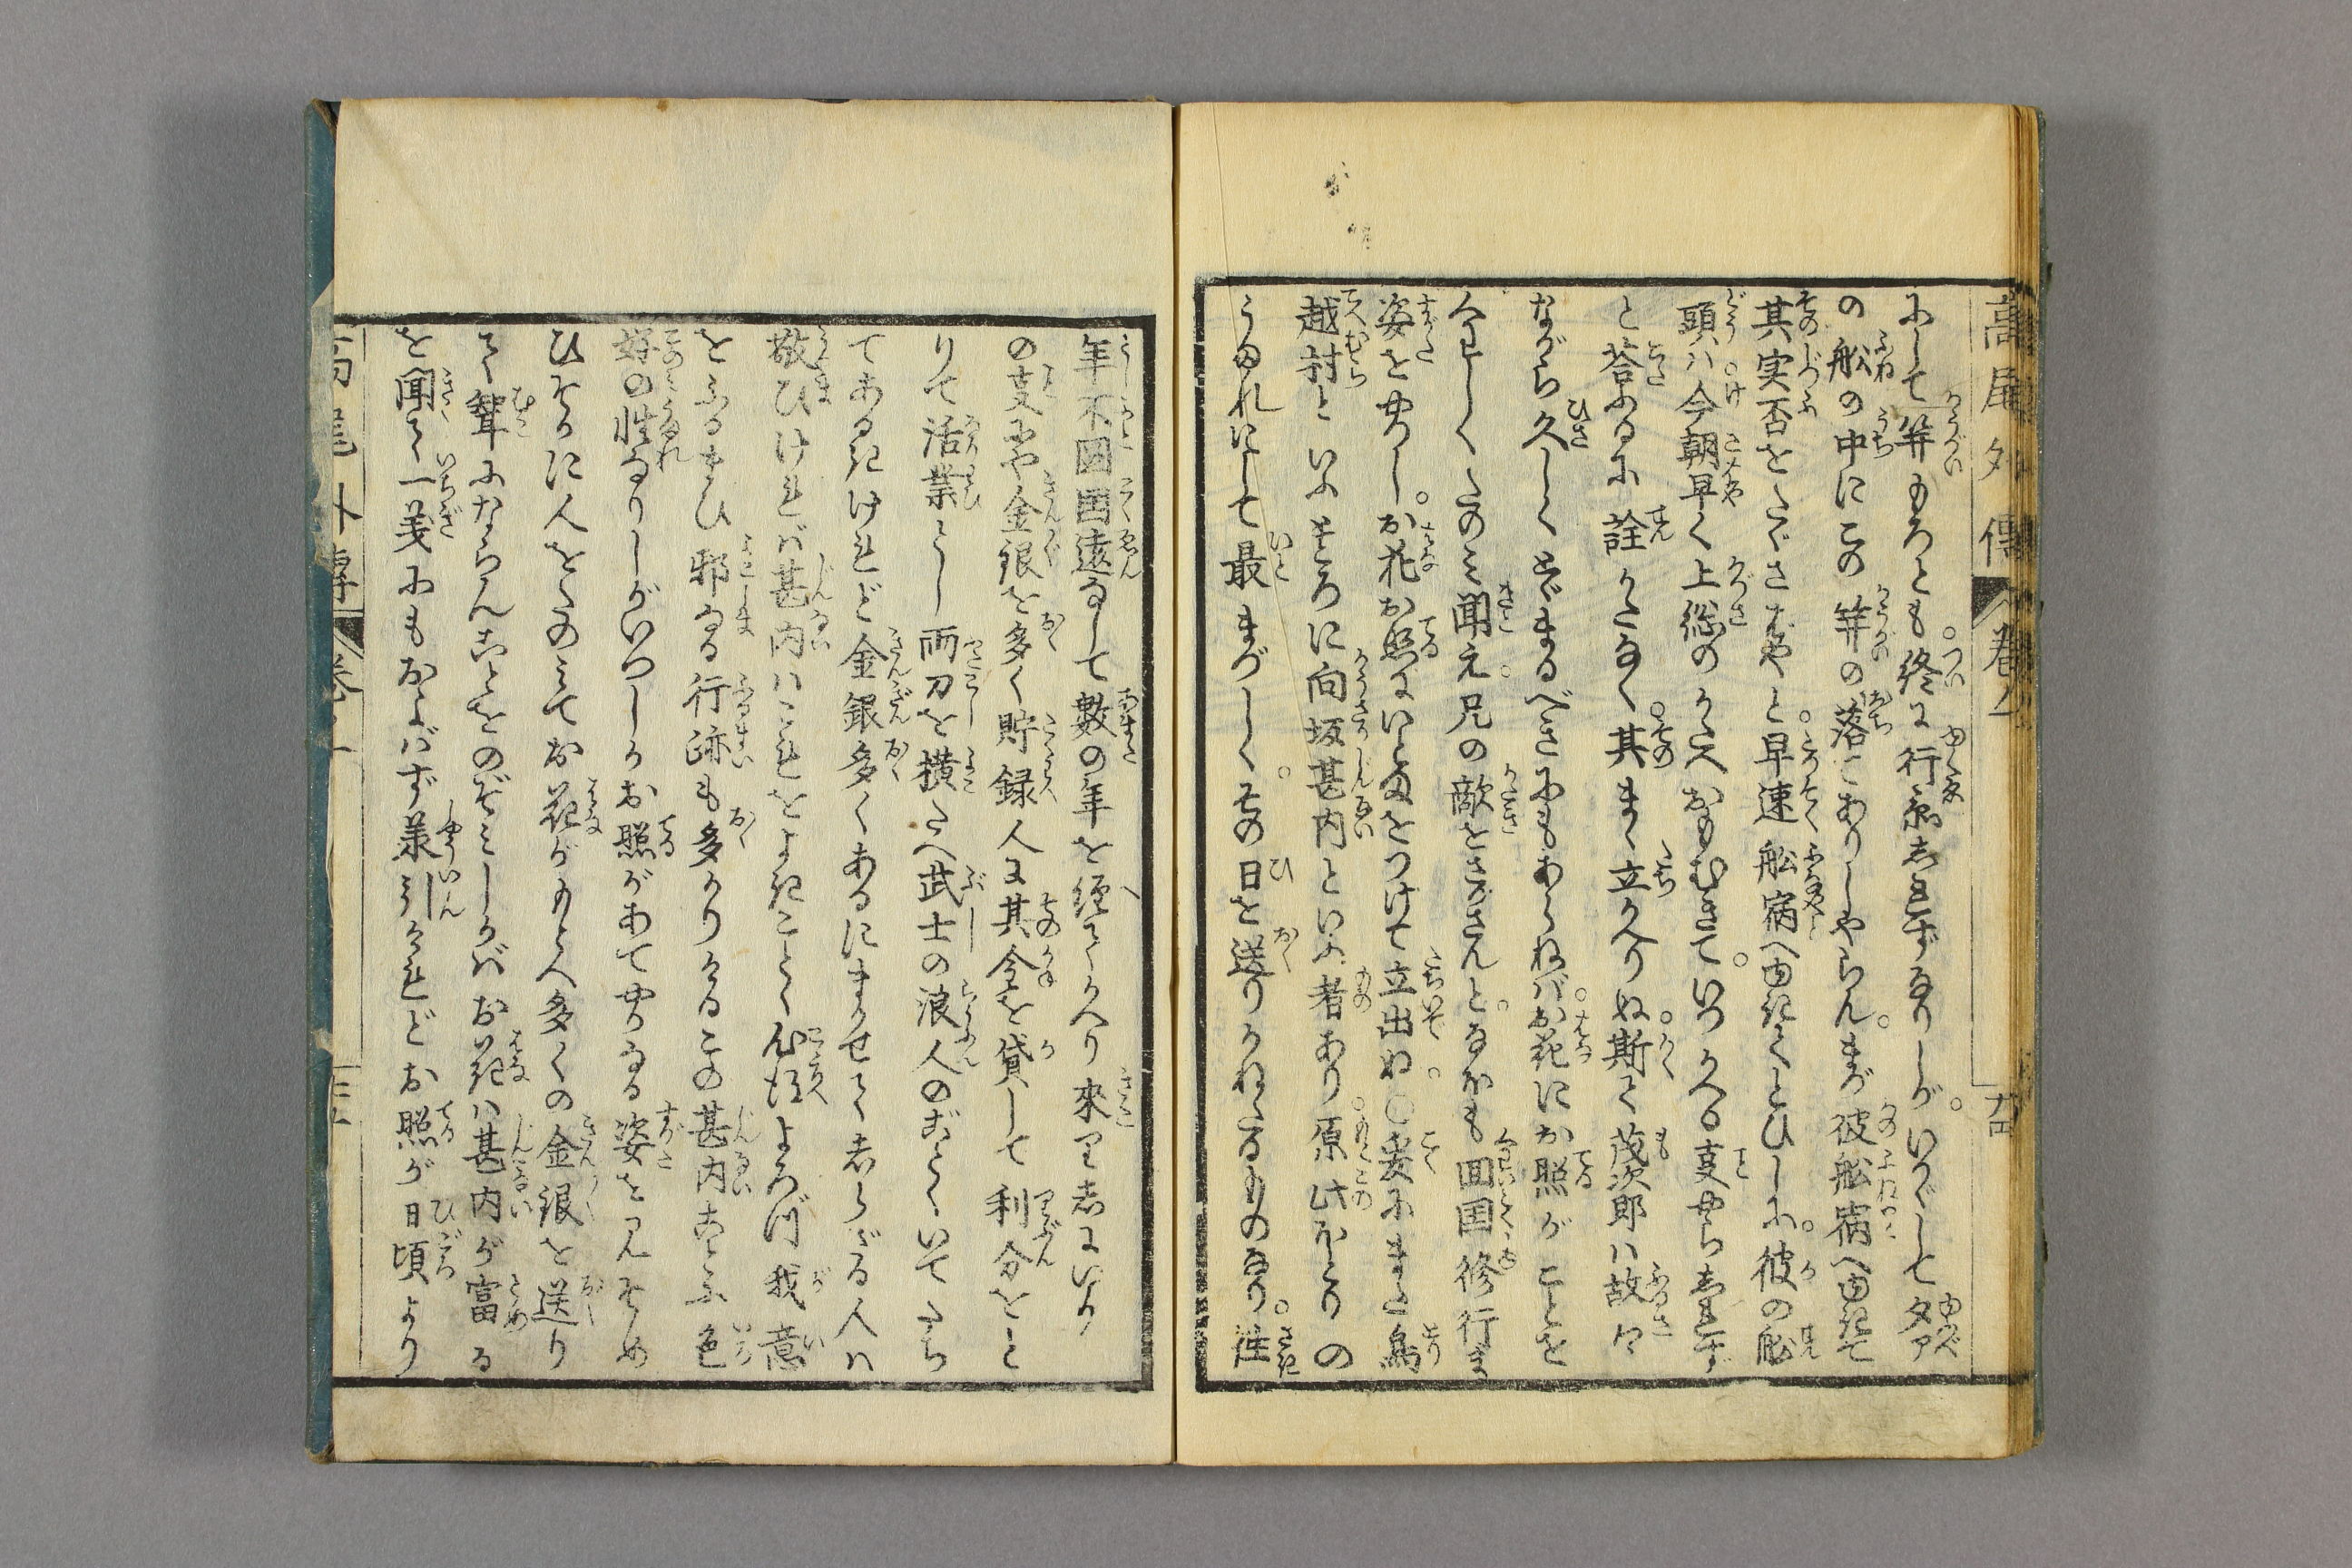 高尾外傳 卷 廿四
ふして笄もろとも終に行衛志れずなりしがいかゞして夕ア
の舩の中にこの笄の落てありしやらんまづ彼舩宿へゆきて
其実否をたゞさばやと早速舩宿へゆきてとひしに彼の舩
頭ハ今朝早く上総のかたへおもむきていつかへる事やら志れず
と荅ふるに詮かたなく其まゝ立かへりぬ斯て茂次郎ハ故々
ながら久しくとゞまるべきにもあらねバお花にお照がことを
くれ〴〵たのみ聞え兄の敵をさがさんとなほも囬国修行ま
姿をやつしお花お照にいとまをつげて立出ぬ〇爰にまた鳥
越村といふところに向坂甚内といふ者あり原此ほとりの
うまれにして最まづしくその日を送りかねたるものなり 徃
年不図囯遠なして數の年を經てかへり來り志にいか
の支にや金銀を多く貯録人に其金を貸して利分をと
りて活業とし両刀を横たへ武士の浪人のごとくいてたち
てありけれど金銀多くあるにまかせて志らざる人ハ
敬ひけれバ甚内ハこれをよきことゝ心得よろづ我意
をふるまひ邪なる行跡も多かりけるこの甚内さへふ色
好の性なりしがいつしかお照があてやかなる姿を見そめ
ひそかに人をたのみてお花がもとへ多くの金銀を送り
て聟にならんことをのぞみしかバお花ハ甚内が富る
を聞て一義にもおよバず羕引けれどお照が日頃より
高尾外傳 卷